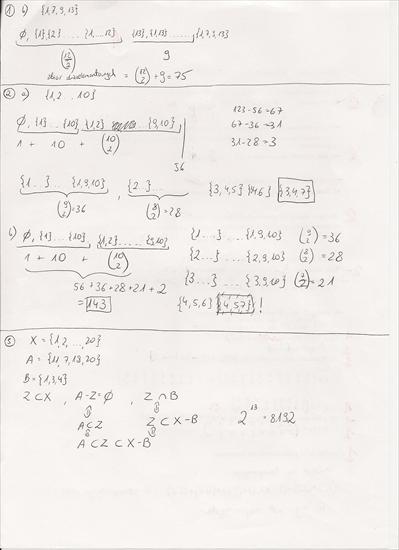 ① b) {1,7,9,13}
∅, {1}{2} .... {1,...12} {13},{1,13} ......., {1,7,9,13}
(12 2) 9
= (12 2) + 9 = 75
② a) {1,2 .. 10}
∅, {1} ... {10}, {1,2} ... {9,10}
1 + 10 + (10 2)
56
123-56=67
67-36=31
31-28=3
{1...} ... {1,9,10} , {2...} ...
(9 2)=36 (8 2)=28
{3,4,5} {3,4,6} {3,4,7}
b) ∅, {1} ... {10}, {1,2} ...... {9,10}
1 + 10 + (10 2)
56+36+28+21+2
= 143
{1...} ... {1,9,10} (9 2) = 36
{2...} ... {2,9,10} (8 2) = 28
{3...} ... {3,9,10} (7 2) = 21
{4,5,6} {4,5,7} !
③ X = {1,2,...,20}
A = {11,7,13,20}
B = {1,3,4}
Z⊂X , A-Z=∅ , Z∩B
⇕ ⇕
A⊂Z Z⊂X-B 2^13 = 8192
⇕ ⇕
A⊂Z⊂X-B